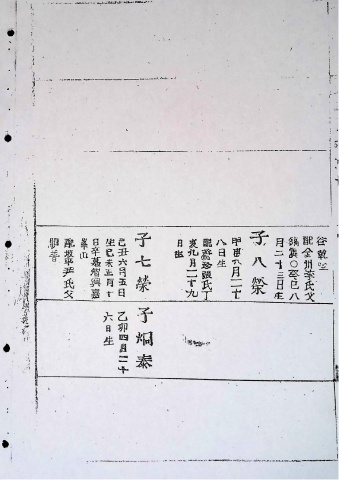 谷乾坐
配全州李氏父
癸巳八
月二十三日生
子八榮
甲申八月二十
八日生
張氏丁
亥九月二十九
日生
子七榮
己丑六月五日
生己未五月十
日卒墓智興嘉
山
配坡平尹氏父
子炯泰
乙卯四月二十
六日生